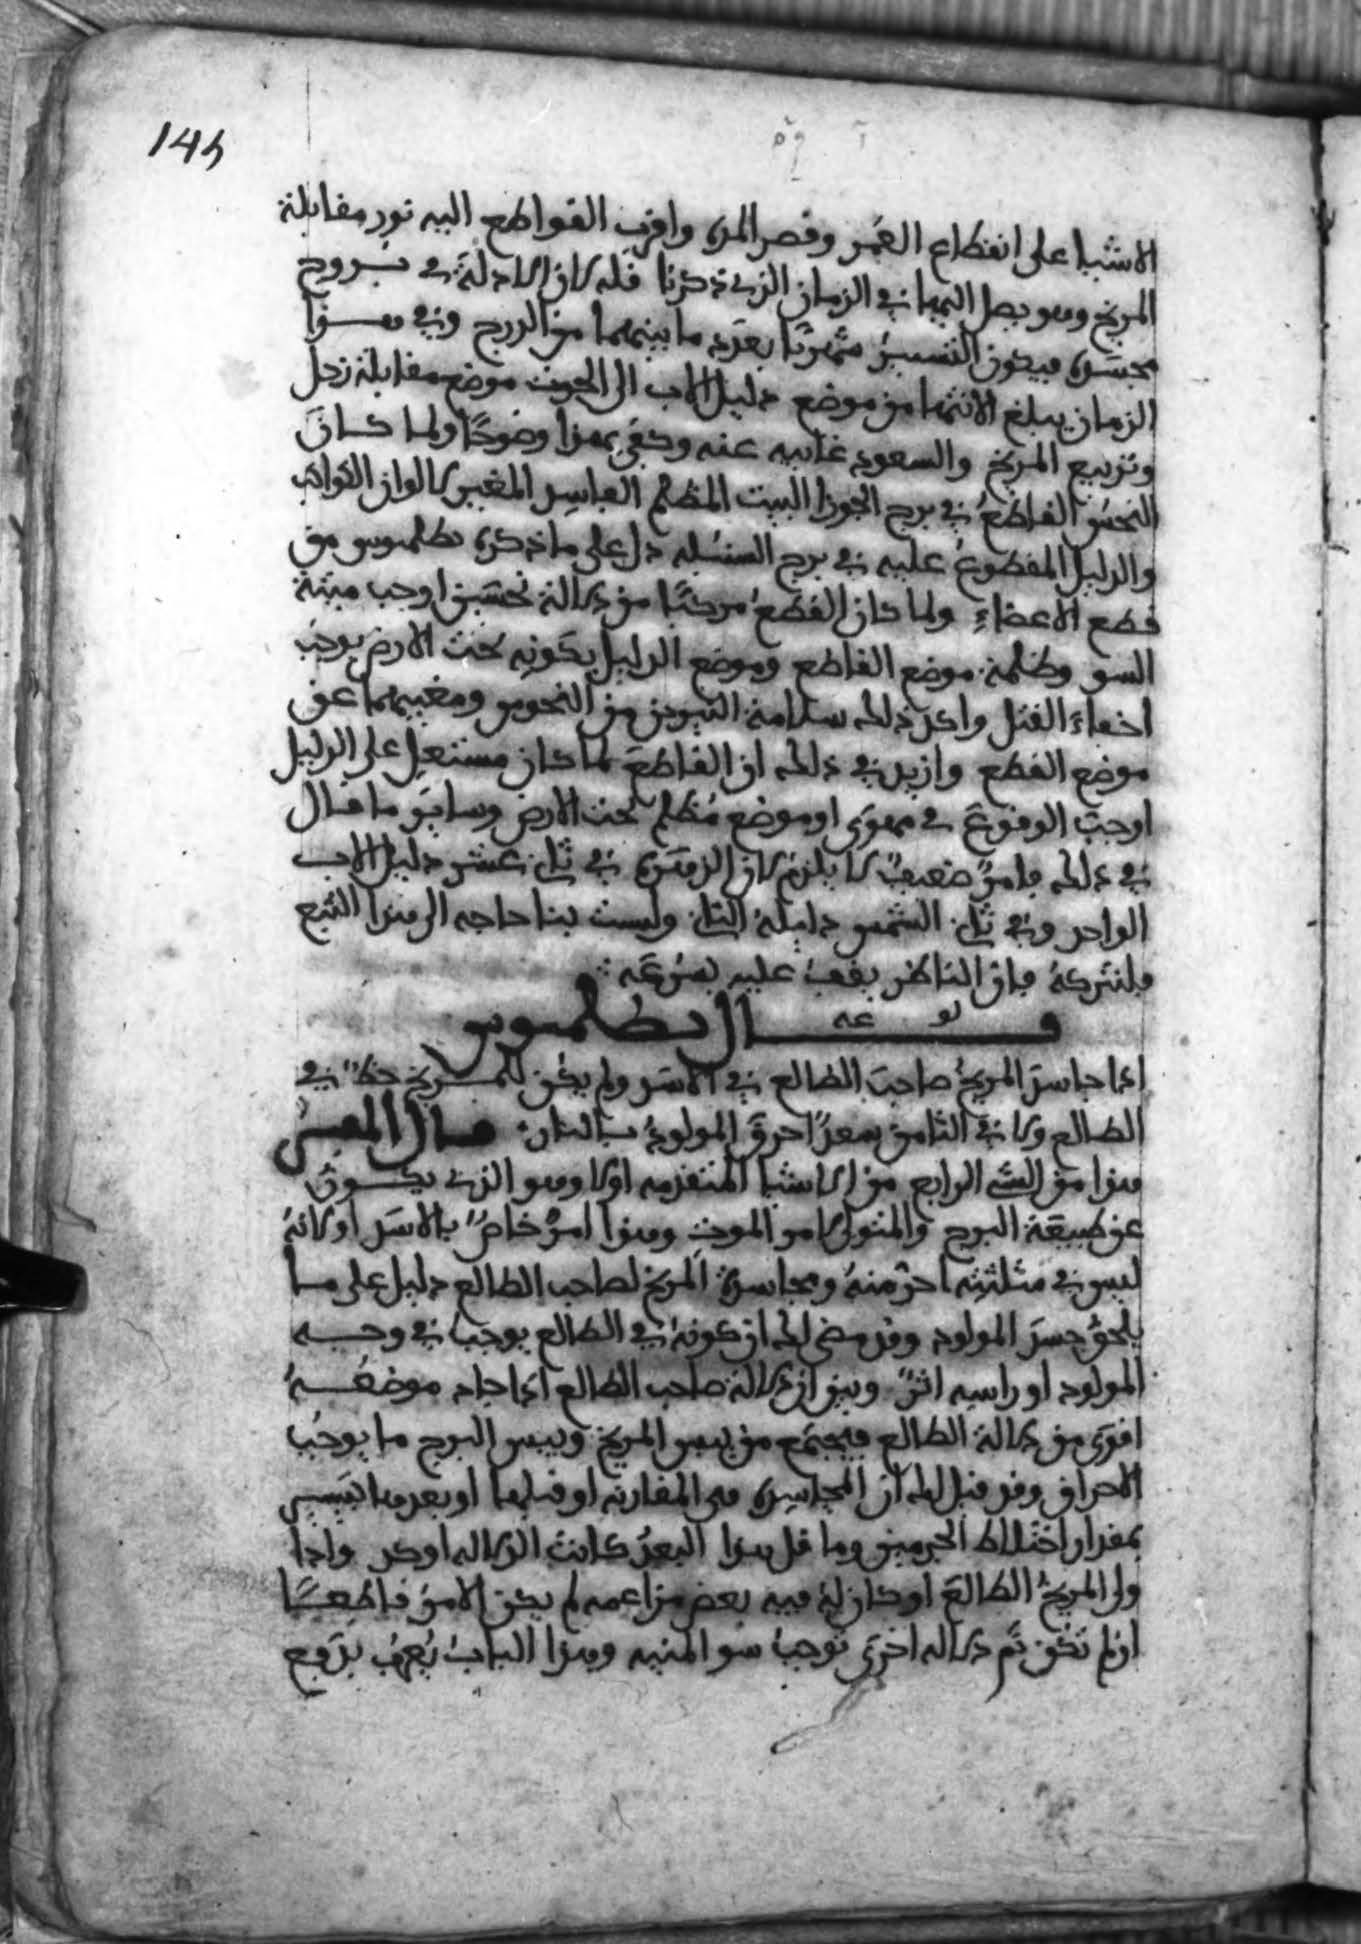 145
الاشيا على انقطاع العمر وقصر المدة واقرب القواطع اليه نور مقابلة
المريخ وهو يصل اليها في الزمان الذي ذكرنا فله كان الادلة في بروج
مجسدة فيكون التسيير بعدد ما بينهما من الدرج وفي هذا
الزمان يبلغ الانتها من موضع دليل الاب الى الحوت موضع مقابلة زحل
وتربيع المريخ والسعود غايبه عنه وكفى بهذا وضوحا ولما كان
النحس القاطع في برج الجوزا البيت المظلم الفاسد المغير لالوان الكواكب
والدليل المقطوع عليه في برج السنبله دل على ما ذكره بطلميوس من
قطع الاعضاء ولما كان القطع مركبا من دلالة نحسين اوجب ميتة
السو وظلمة موضع القاطع وموضع الدليل بكونه تحت الارض يوجب
اخفاء القتل واكد ذلك سلامة النيرين من النحوس ومغيبهما عن
موضع القطع وازيد في ذلك ان القاطع لما كان مستعل على الدليل
اوجب الوقوع في مهوى او موضع مظلم تحت الارض وسايق ما قال
في ذلك فامر ضعيف لا يلزم لان الزهرة في ثاني عشر دليل الاب
الواحد وفي ثاني الشمس دليله الثاني وليست بنا حاجه الى هذا التبع
فلنتركه فان الناظر يقف عليه بسرعة
قال بطلميوس
اذا جاسد المريخ صاحب الطالع في الاسد ولم يكن للمريخ حظ في
الطالع ولا في الثامن سعد احرق المولود بالنار قال المفسر
هذا من الشي الرابع من الاشيا المتقدمه اولا وهو الذي يكون
عن طبيعة البرج والمتولي امر الموت وهذا امر خاص بالاسد اولا لانه
ليس في مثلثته احر منه ومجاسدة المريخ لصاحب الطالع دليل على ما
يلحق جسد المولود وقد مضى لك ان كونه في الطالع يوجب في وجه
المولود او راسه اثر وبين ان دلالة صاحب الطالع اذا جاد موضعه
اقوى من دلالة الطالع فيجتمع من يبس المريخ ويبس البرج ما يوجب
الاحراق وقد قيل لك ان المجاسدة هي المقارنه او قبلها او بعدها بيسير
بمقدار اختلاط الجرمين وما قل هذا البعد كانت الدلاله اوكد واذا
ولي المريخ الطالع او كان له فيه بعض مزاعمه لم يكن الامر قاطعا
ان لم تكن ثم دلاله اخرى توجب سو المنيه وهذا الباب يعرف برفع